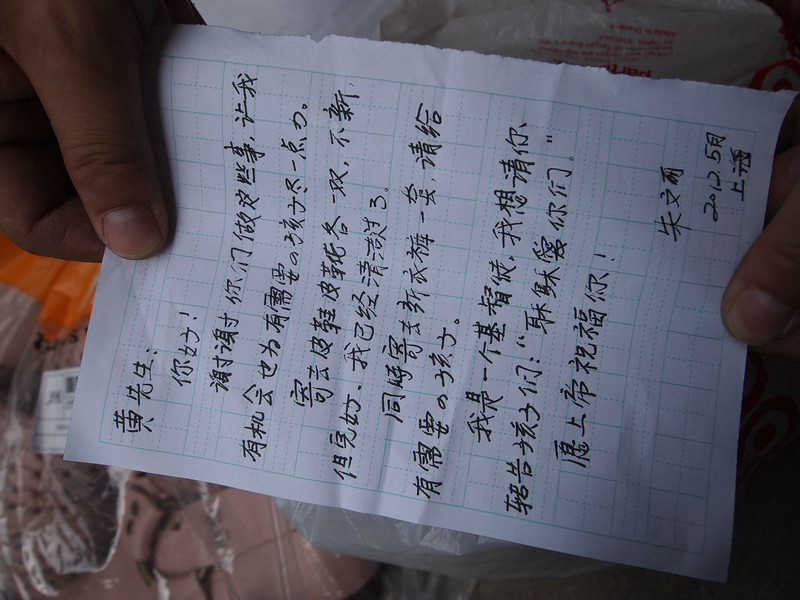 黄先生:
你好!
谢谢你们做这些事,让我
有机会也为有需要的孩子尽一点力。
寄去皮鞋皮靴各一双,不新,
但完好、我已经清洁过了。
同时寄去新衣裤一套,请给
有需要的孩子。
我是一个基督徒,我想请你
转告孩子们:“耶稣爱你们。”
愿上帝祝福你!
朱文丽
2012.5月
上海